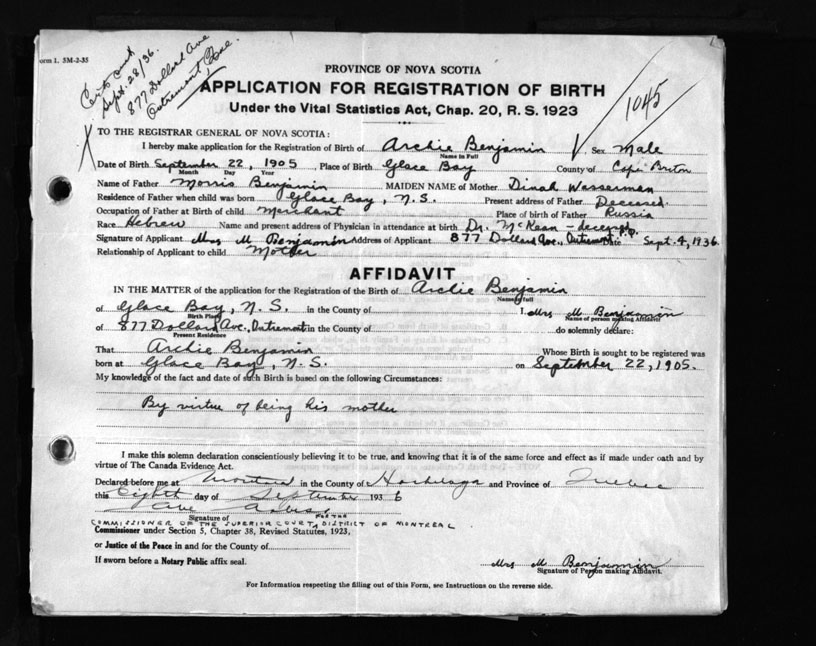 orm 1. 5M-2-35
Cert sent
Sept. 28/36.
877 Dollard Ave
Outremont, Que.
1045
PROVINCE OF NOVA SCOTIA
APPLICATION FOR REGISTRATION OF BIRTH
Under the Vital Statistics Act, Chap. 20, R. S. 1923
TO THE REGISTRAR GENERAL OF NOVA SCOTIA:
I hereby make application for the Registration of Birth of Archie Benjamin Sex Male
Name in Full
Date of Birth September 22, 1905, Place of Birth Glace Bay County of Cape Breton
Month Day Year
Name of Father Morris Benjamin MAIDEN NAME of Mother Dinah Wasserman
Residence of Father when child was born Glace Bay, N. S. Present address of Father Deceased
Occupation of Father at Birth of child Merchant Place of birth of Father Russia
Race Hebrew Name and present address of Physician in attendance at birth Dr. McKean - deceased
Signature of Applicant Mrs M Benjamin Address of Applicant 877 Dollard Ave., Outremont P.Q. Date Sept. 4, 1936.
Relationship of Applicant to child Mother
AFFIDAVIT
IN THE MATTER of the application for the Registration of the Birth of Archie Benjamin
Name in full
of Glace Bay, N. S. in the County of I, Mrs M Benjamin
Birth Place Name of person making Affidavit
of 877 Dollard Ave., Outremont in the County of do solemnly declare:
Present Residence
That Archie Benjamin Whose Birth is sought to be registered was
born at Glace Bay, N. S. on September 22, 1905.
My knowledge of the fact and date of such Birth is based on the following Circumstances:
By virtue of being his mother
I make this solemn declaration conscientiously believing it to be true, and knowing that it is of the same force and effect as if made under oath and by
virtue of The Canada Evidence Act.
Declared before me at Montreal in the County of Hochelaga and Province of Quebec
this Eighth day of September 1936
Signature of FOR THE
COMMISSIONER OF THE SUPERIOR COURT, DISTRICT OF MONTREAL
Commissioner under Section 5, Chapter 38, Revised Statutes, 1923,
or Justice of the Peace in and for the County of
If sworn before a Notary Public affix seal.
Mrs M Benjamin
Signature of Person making Affidavit.
For Information respecting the filling out of this Form, see Instructions on the reverse side.